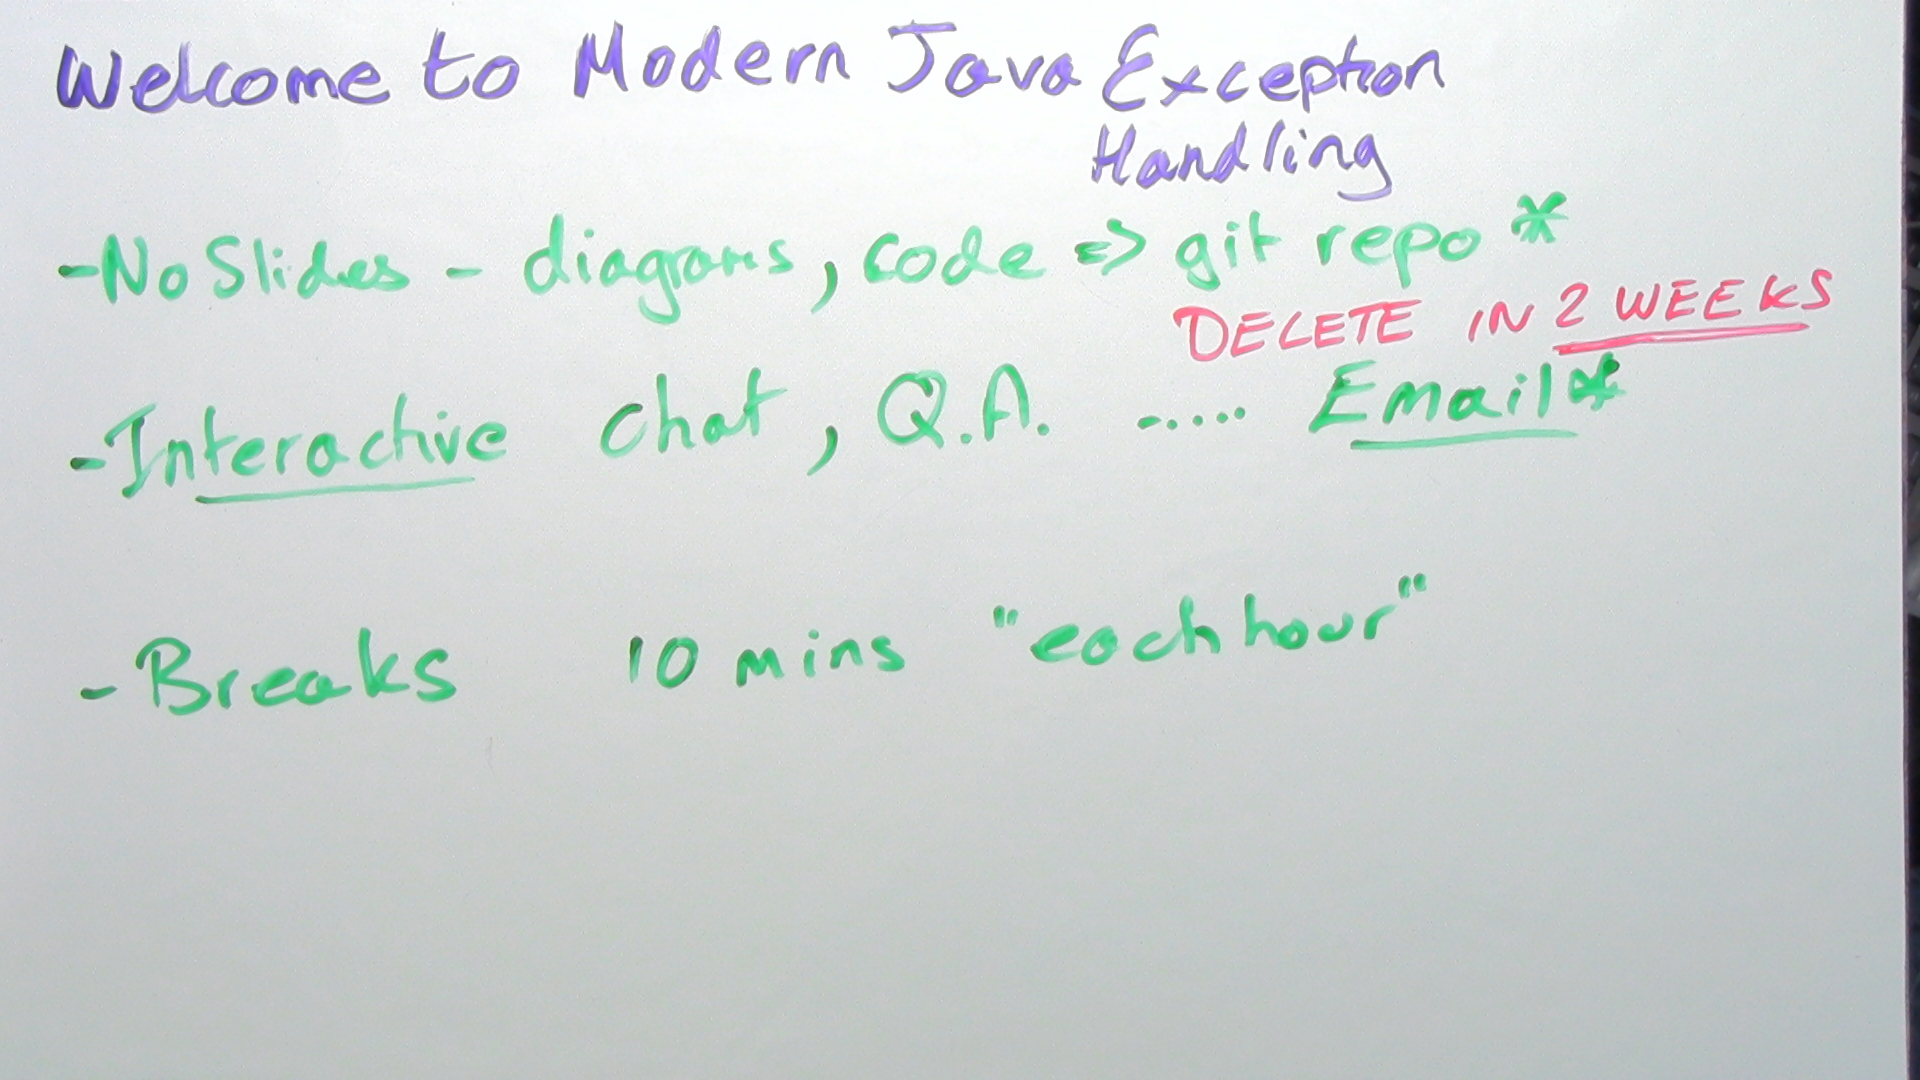 Welcome to Modern Java Exception
Handling
- No Slides - diagrams, code => git repo *
DELETE IN 2 WEEKS
- Interactive chat, Q.A. ..... Email *
- Breaks 10 mins "each hour"